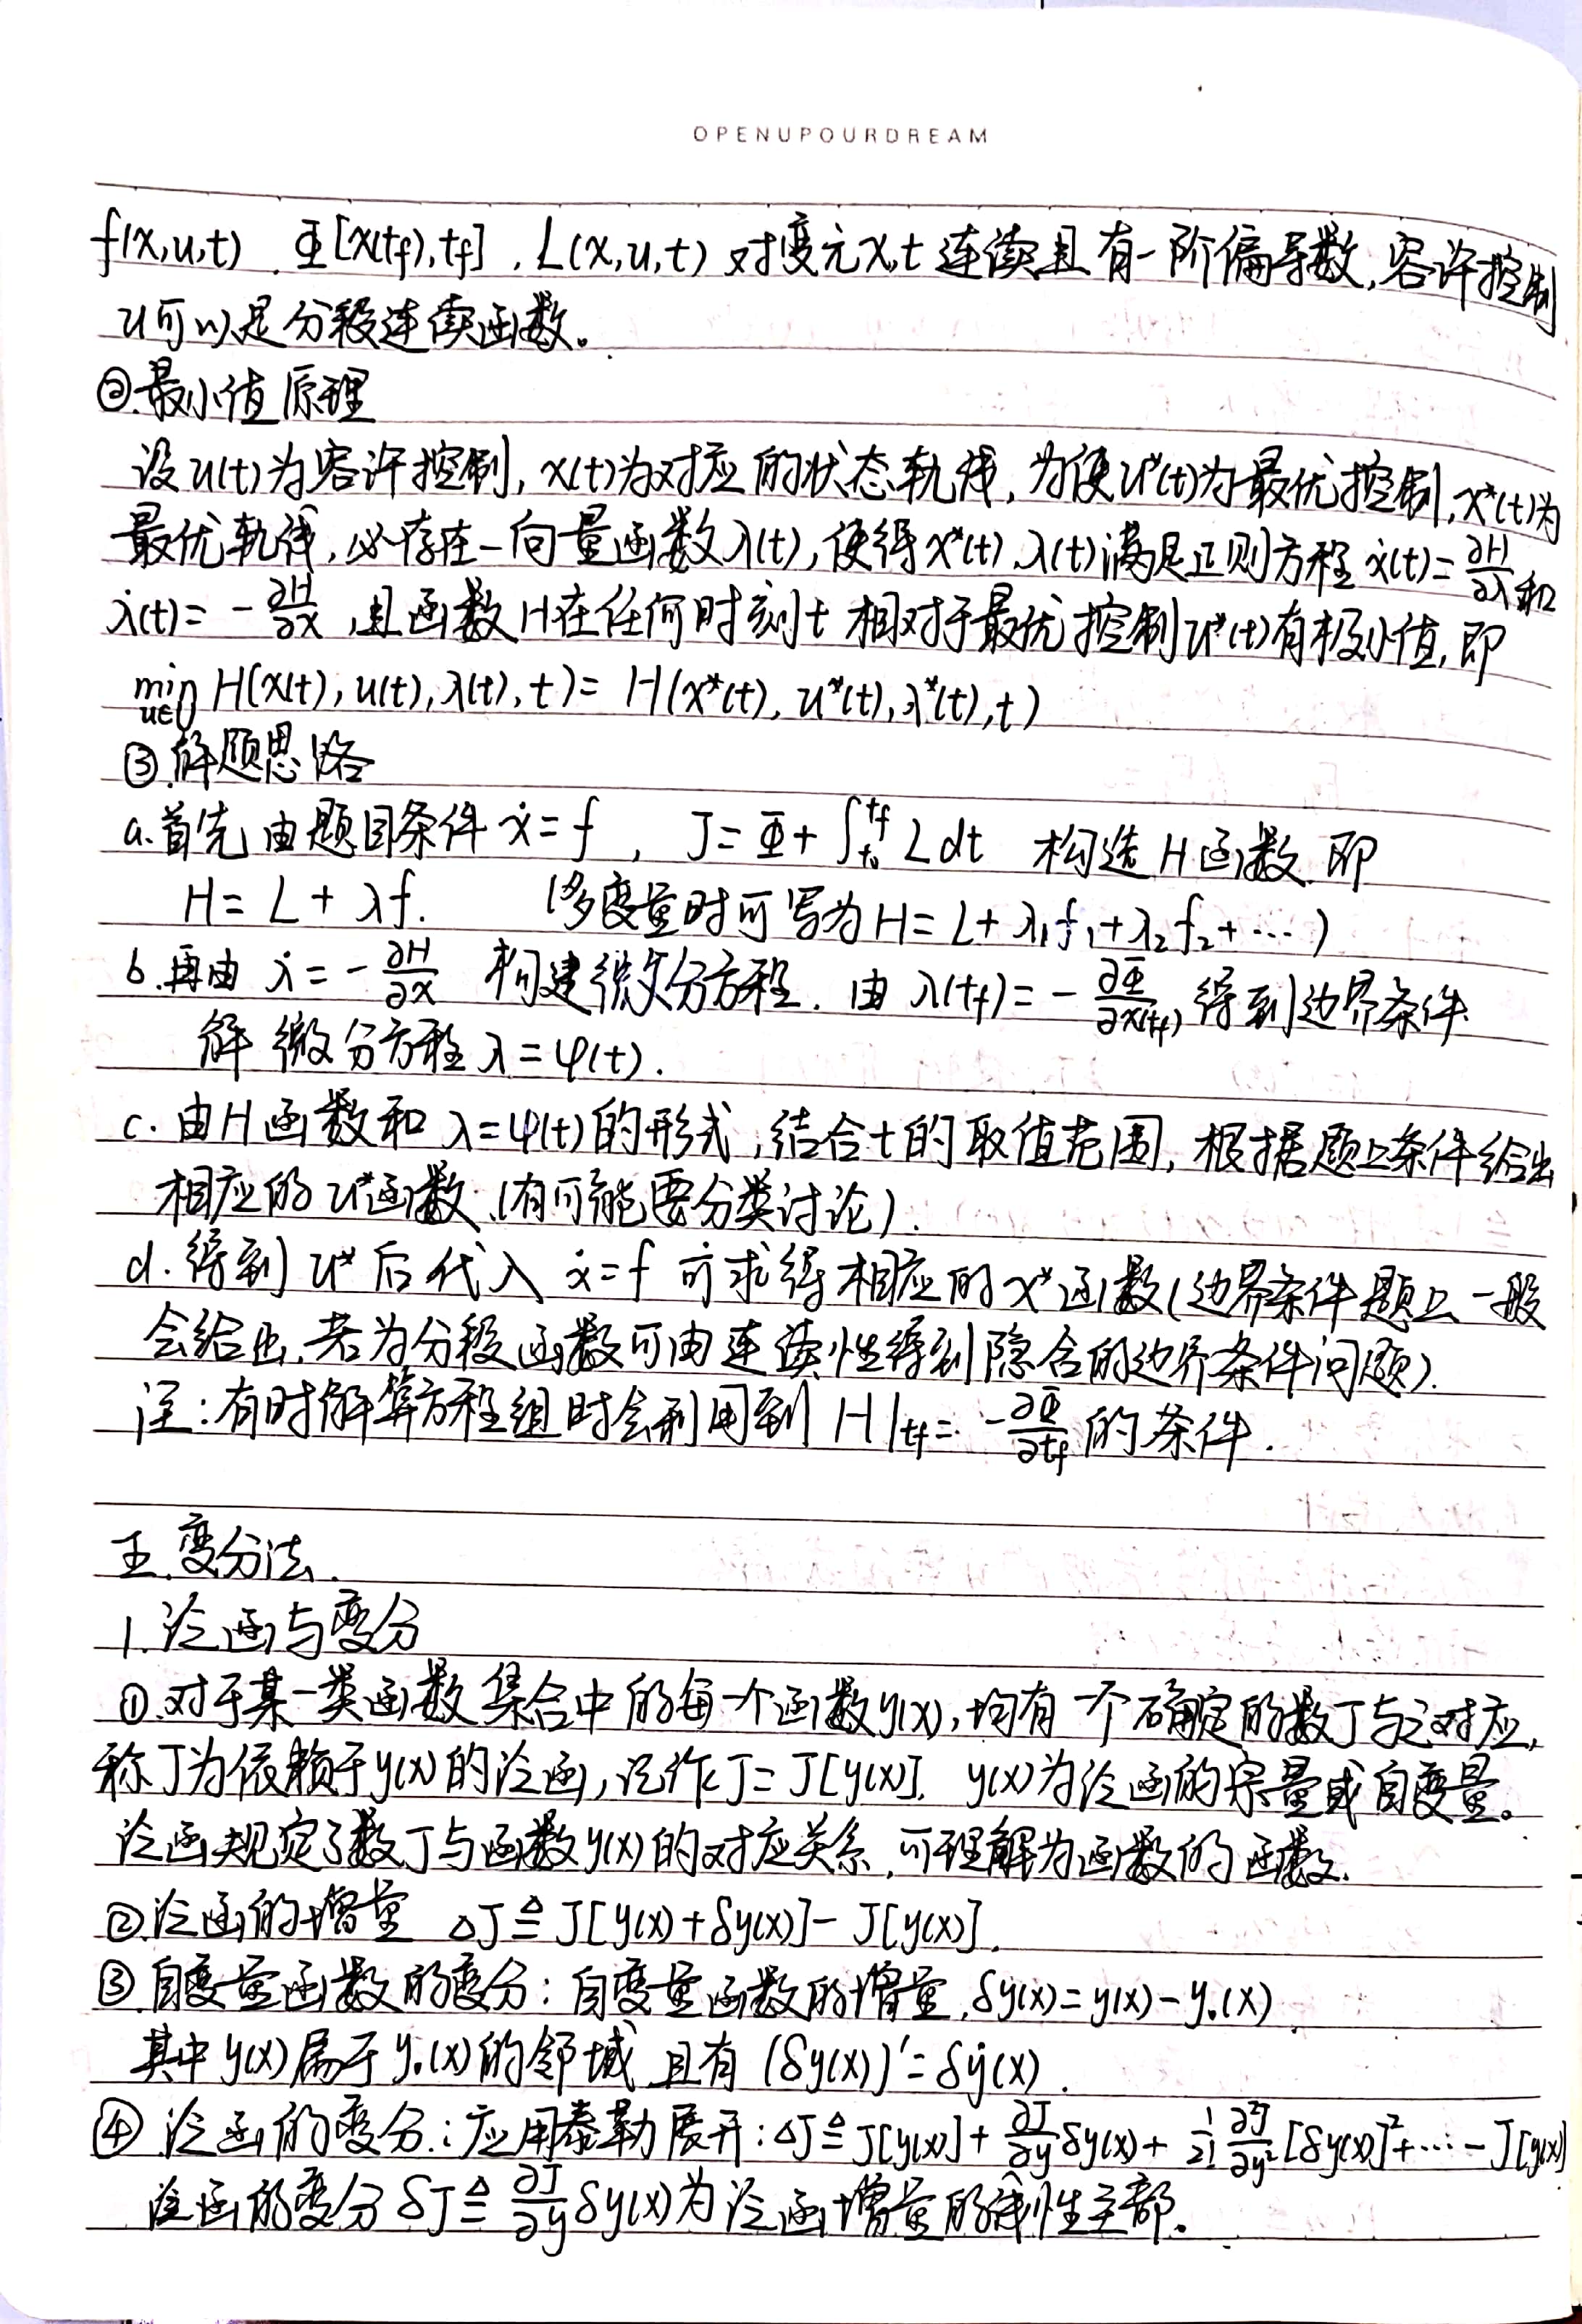 OPENUPOURDREAM
f(x,u,t), Φ[x(tf),tf], L(x,u,t) 对变元x,t 连续且有一阶偏导数,容许控制
u可以是分段连续函数。
②.最小值原理
设u(t)为容许控制, x(t)为对应的状态轨线, 为使u*(t)为最优控制, x*(t)为
最优轨线, 必存在一向量函数λ(t), 使得x*(t), λ(t)满足正则方程 ẋ(t)= ∂H/∂λ 和
λ̇(t)= - ∂H/∂x ,且函数H在任何时刻t 相对于最优控制u*(t)有极小值, 即
min u∈U H(x(t), u(t), λ(t), t)= H(x*(t), u*(t), λ*(t), t)
③.解题思路
a.首先由题目条件 ẋ= f , J= Φ+ ∫t₀^tf L dt 构造H函数. 即
H= L + λf. (多变量时可写为H= L+ λ₁f₁+λ₂f₂+ ⋯ )
b.再由 λ̇= - ∂H/∂x 构建微分方程. 由 λ(tf)= - ∂Φ/∂x(tf) 得到边界条件.
解微分方程 λ=φ(t).
c. 由H函数和 λ=φ(t)的形式,结合t的取值范围, 根据题上条件给出
相应的u*函数.(有可能要分类讨论).
d. 得到u*后代入 ẋ=f 可求得相应的x*函数(边界条件题上一般
会给出,若为分段函数可由连续性得到隐含的边界条件问题).
注:有时解算方程组时会利用到 H|tf= -∂Φ/∂tf 的条件.
五.变分法.
1.泛函与变分
①.对于某一类函数集合中的每一个函数y(x), 均有一个确定的数J与之对应,
称J为依赖于y(x)的泛函,记作J= J[y(x)]. y(x)为泛函的宗量或自变量。
泛函规定了数J与函数y(x)的对应关系,可理解为函数的函数.
②.泛函的增量 ΔJ≜ J[y(x)+δy(x)]- J[y(x)].
③.自变量函数的变分: 自变量函数的增量,δy(x)= y(x)-y₀(x)
其中y(x)属于y₀(x)的邻域 且有 (δy(x))'= δẏ(x).
④ 泛函的变分: 应用泰勒展开: ΔJ≜ J[y(x)]+ ∂J/∂y δy(x)+ 1/2! ∂²J/∂y² [δy(x)]²+⋯- J[y(x)]
泛函的变分 δJ≜ ∂J/∂y δy(x)为泛函增量的线性主部。